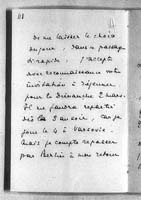 de me laisser le choix
du jour, dans ce passage
si rapide, j'accepte
avec reconnaissance votre
invitation à déjeuner
pour le Dimanche 2 mars.
Il me faudra repartir
dès le car je
joue le 4 à Varsovie.
Mais je compte repasser
par Berlin à mon retour